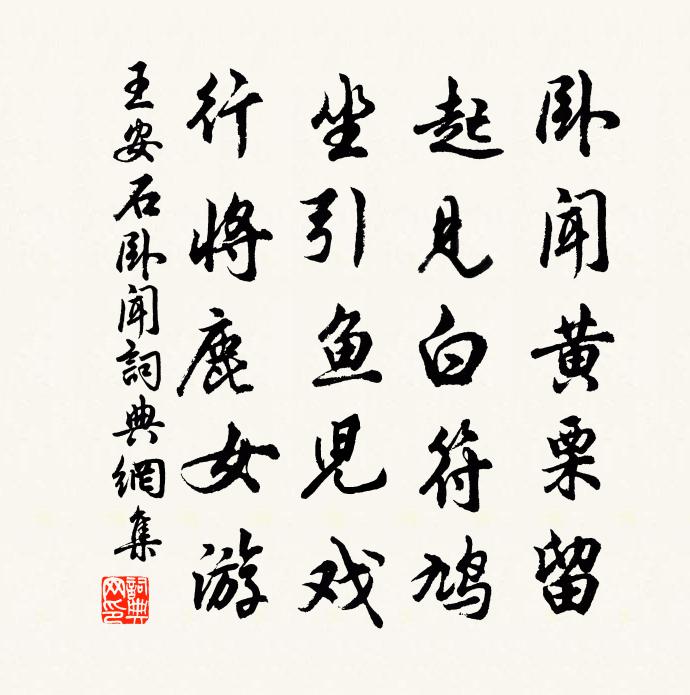 卧闻黄栗留
起见白符鸠
坐引鱼児戏
行将鹿女游
王安石卧闻詞典網集
詞典網印